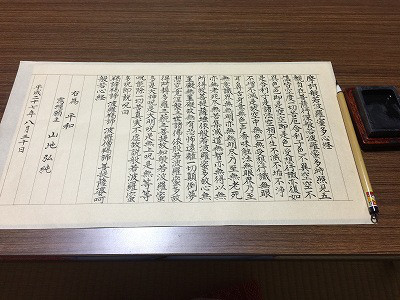 摩訶般若波羅蜜多心経
観自在菩薩行深般若波羅蜜多時照見五
蘊皆空度一切苦厄舎利子色不異空空不
異色色即是空空即是色受想行識亦復如
是舎利子是諸法空相不生不滅不垢不浄
不増不減是故空中無色無受想行識無眼
耳鼻舌身意無色声香味触法無眼界乃至
無意識界無無明亦無無明尽乃至無老死
亦無老死尽無苦集滅道無智亦無得以無
所得故菩提薩埵依般若波羅蜜多故心無
罣礙無罣礙故無有恐怖遠離一切顛倒夢
想究竟涅槃三世諸仏依般若波羅蜜多故
得阿耨多羅三藐三菩提故知般若波羅蜜
多是大神呪是大明呪是無上呪是無等等
呪能除一切苦真実不虚故説般若波羅蜜
多呪即説呪曰
羯諦羯諦波羅羯諦波羅僧羯諦菩提薩婆訶
般若心経
右為 平和
願主 山地弘純
平成二十七年八月 十日